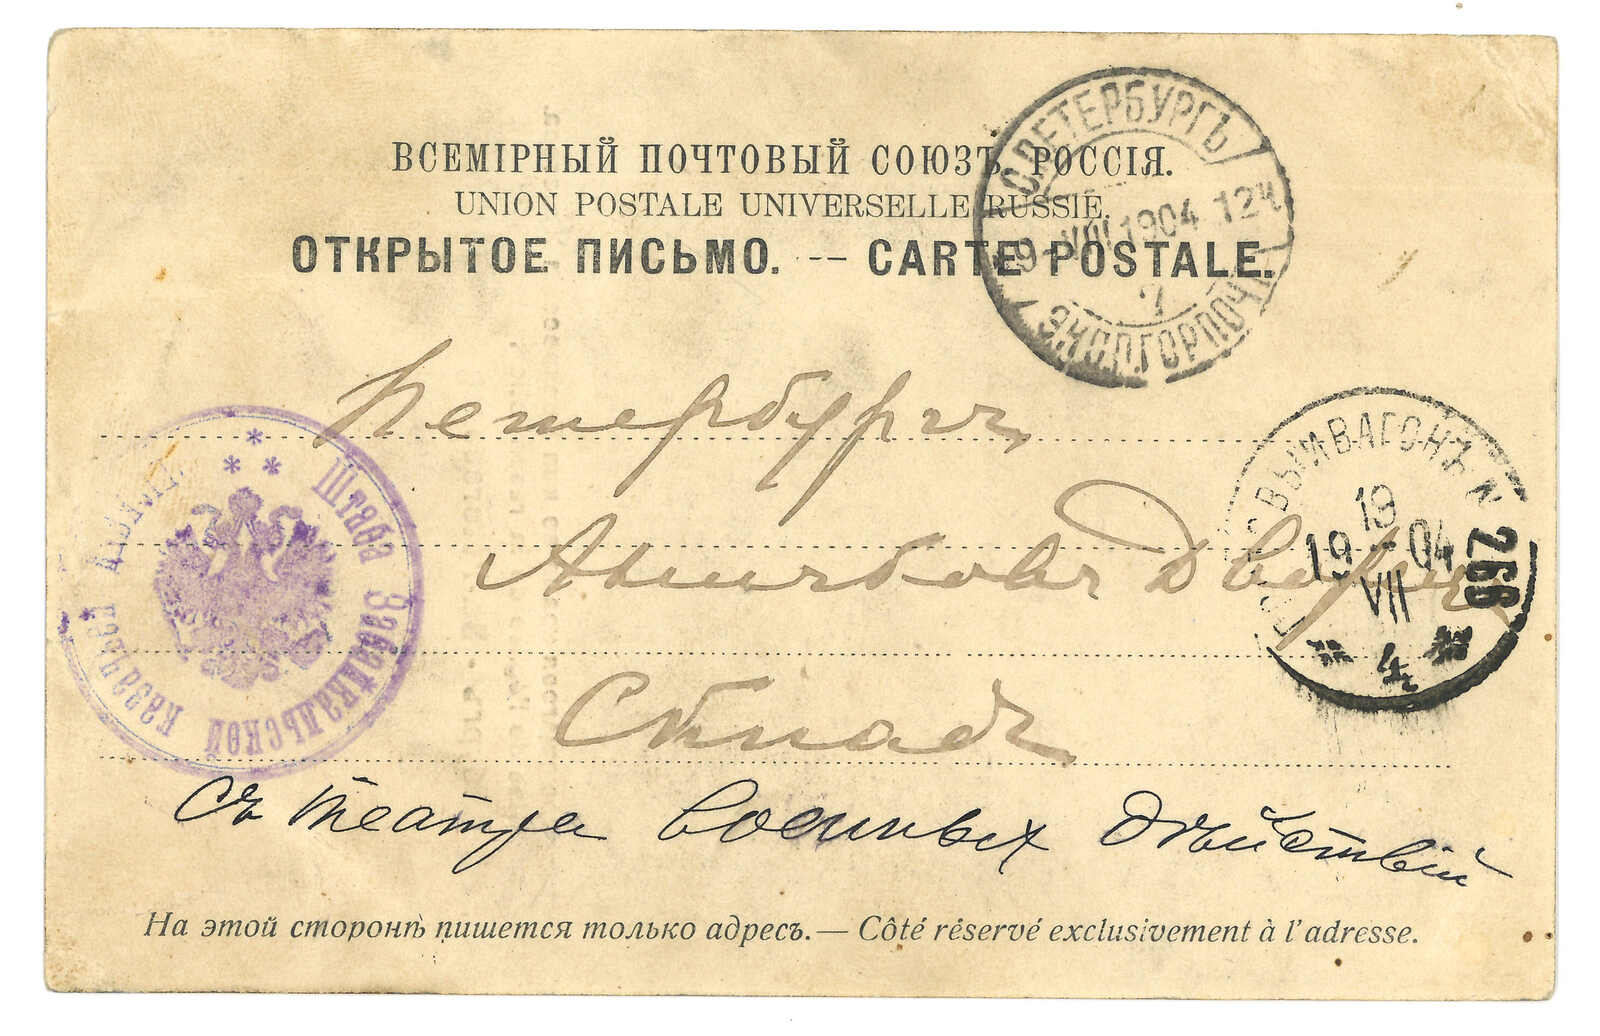 ВСЕМІРНЫЙ ПОЧТОВЫЙ СОЮЗЪ, РОССІЯ.
UNION POSTALE UNIVERSELLE RUSSIE.
ОТКРЫТОЕ ПИСЬМО. -- CARTE POSTALE.
С.ПЕТЕРБУРГЪ
9-VIII 1904 12Ч
7
ГОР.ПОЧТ
Петербургъ
ВАГОНЪ N 268
19
19 04
VII
4
Штаба Забайкальской Казачьей
Дворец
Складъ
съ театра военныхъ действій
На этой сторонѣ пишется только адресъ.— Côté réservé exclusivement à l'adresse.